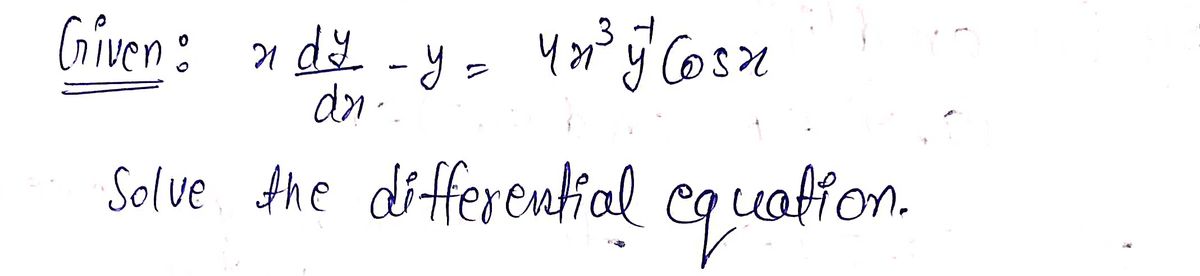 Given: x dy/dx - y = 4x³ y⁻¹ Cosx
Solve the differential equation.